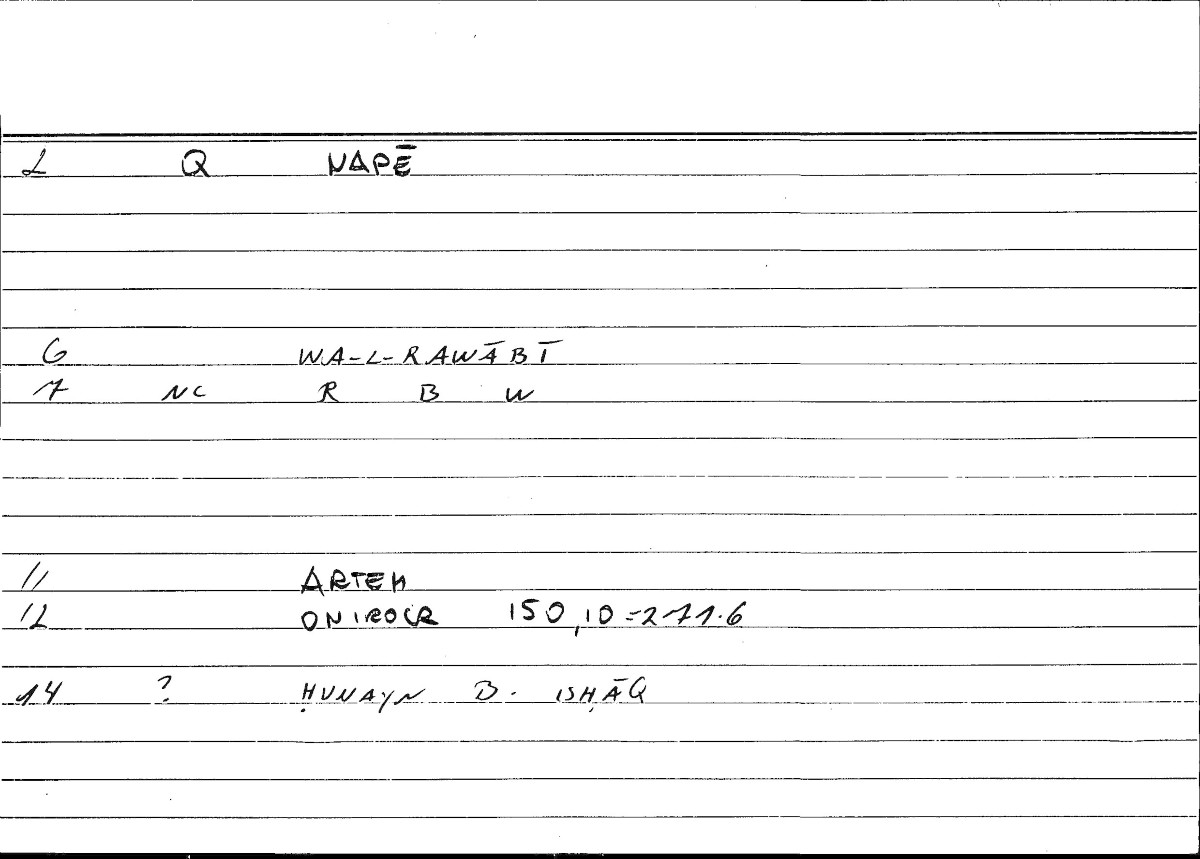 L Q NAPĒ
6 WA-L-RAWĀBĪ
7 NC R B W
11 ARTEM
12 ONIROCR 150,10=271.6
14 ? ḤUNAYN B. ISḤĀQ